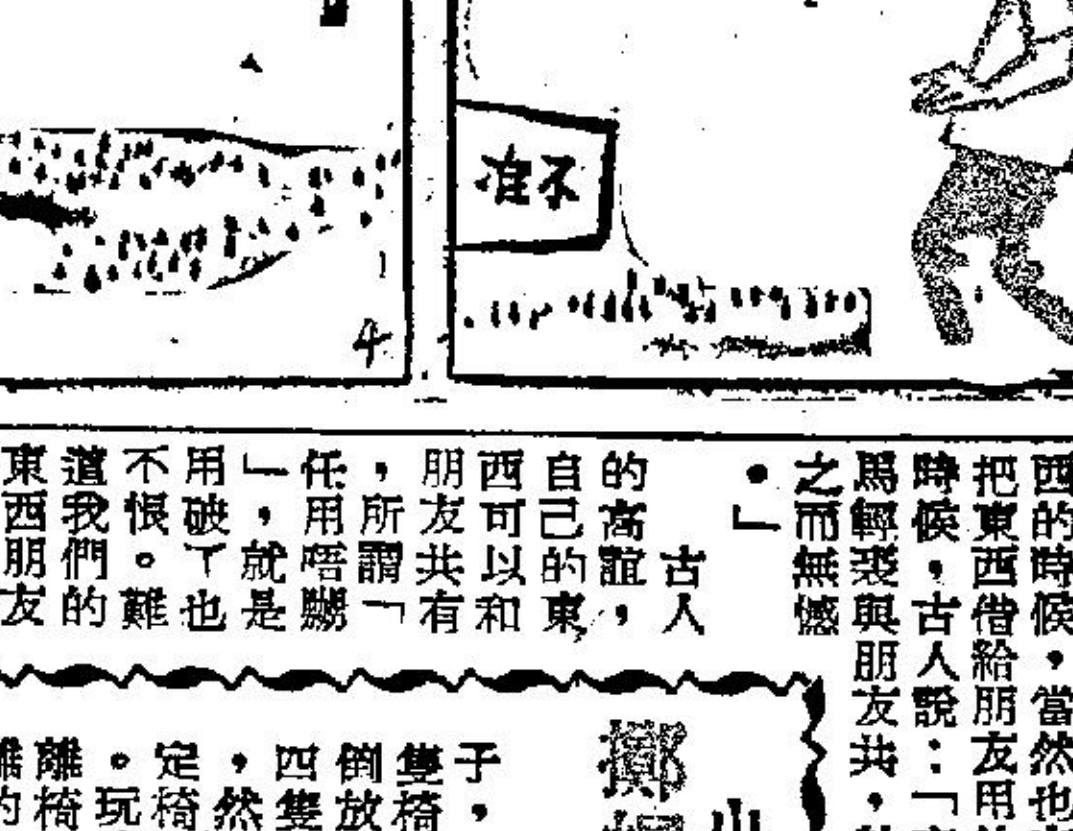 不准
4
西的時候，當然也
把東西借給朋友用
時候，古人說：「
馬輕裘與朋友共，
之而無憾
。」
古人
的高誼，
自己的東
西可以和
朋友共有
，所謂「
任用唔嬲
」，就是
用破了也
不恨。難
道我們的
東西朋友
擲
子，
隻椅
倒放
四隻
，然
定椅
。玩
離椅